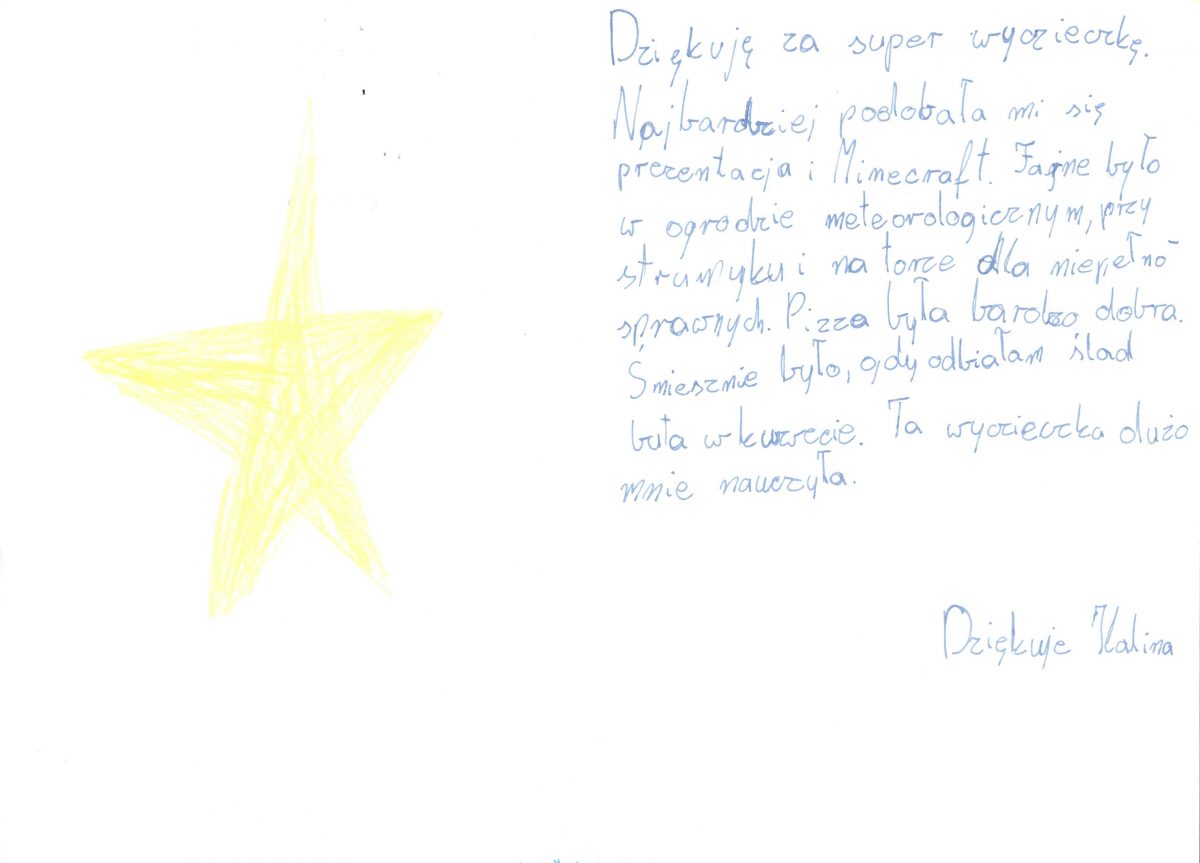 Dziękuję za super wycieczkę.
Najbardziej podobała mi się
prezentacja i Minecraft. Fajne było
w ogrodzie meteorologicznym, przy
strumyku i na torze dla niepełno-
sprawnych. Pizza była bardzo dobra.
Śmiesznie było, gdy odbiałam ślad
buta w kuwecie. Ta wycieczka dużo
mnie nauczyła.
Dziękuje Kalina